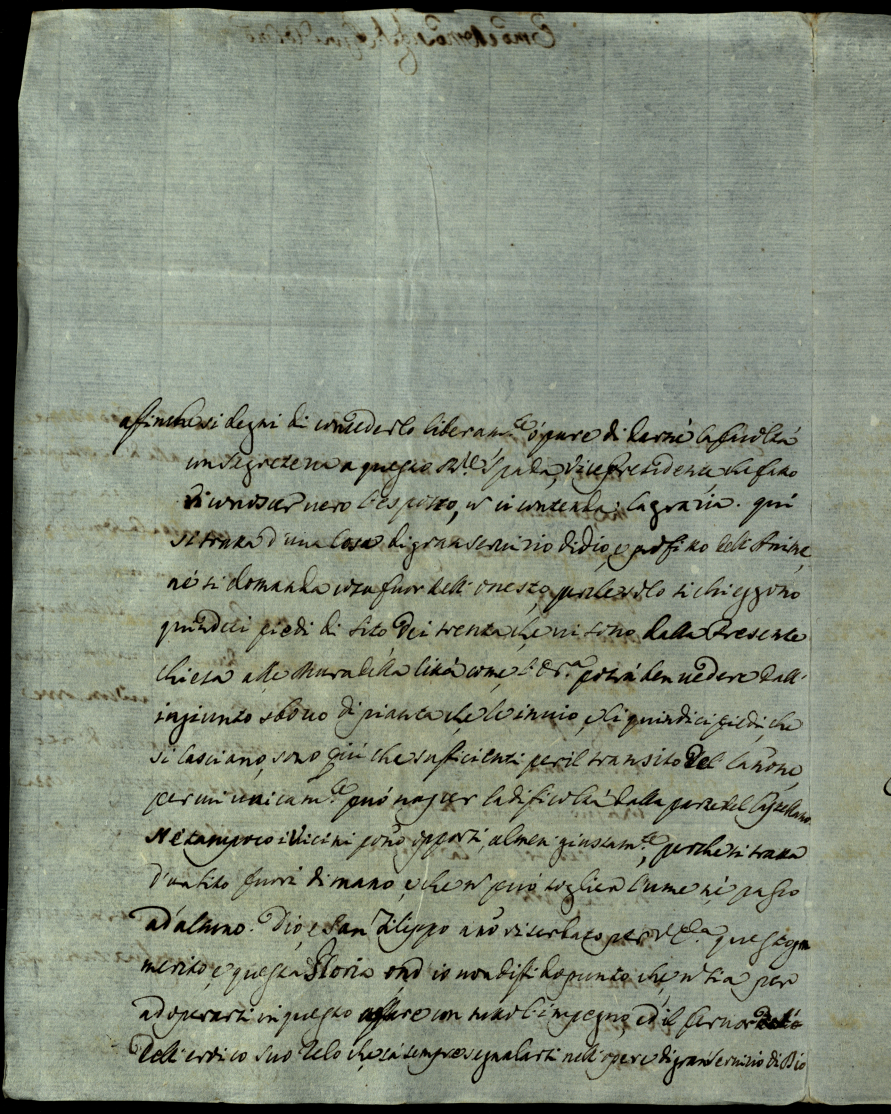 affinche si degni di concederlo liberam.te ò pure di darne la facoltà
in Segreteria a questo Vicepresidente, che fatto
l'esposto, in contenta: la grazia. qui
si tratta d'una Cosa di gran servizio di Dio, e profitto dell'Anime,
nè si domanda cosa fuor dell'onesto, perche solo si chieggono
quindeci piedi di sito dei trenta che vi sono dalla Presente
chiesa alle Mura della Città come potrà ben vedere dall'
ingiunto sbozzo di pianta che le invio, e li quindici piedi, che
si lasciano, sono più che sufficienti per il transito del Canone,
per cui unicam.te può nascer la dificoltà dalla parte del Castellano.
Ne tampoco i Vicini pono opporsi, almen giustam.te, perche si tratta
d'un sito fuori di mano, e che può toglier lume nè passo
ad alcuno. Dio, e San Filippo anno riserbato per questo gn
merito, e questa Gloria ond io non difido punto che sia per
adoperarsi in questo affare con tutto l'impegno, ed il fervor
dell'eroico suo Zelo che sà sempre segnalarsi nell'opere di gran servizio di Dio